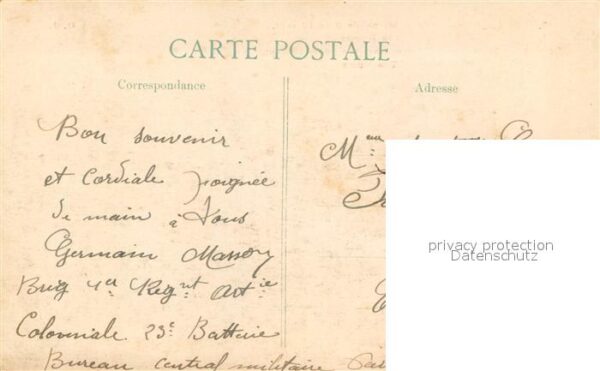 CARTE POSTALE
Correspondance
Adresse
Bon souvenir
et Cordiale poignée
de main à Tous
Germain Masson
Brig 1er Regnt Artie
Coloniale 23e Batterie
Bureau central militaire
Mme
privacy protection
Datenschutz